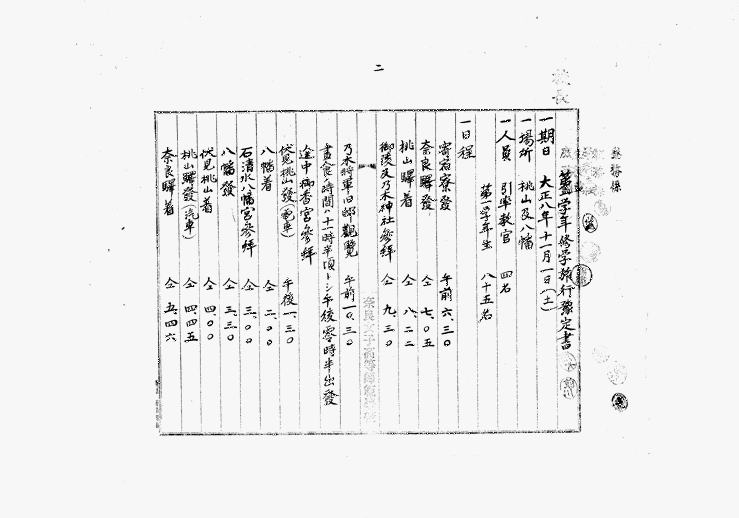 二
校長
學年修学旅行豫定書
一期日 大正八年十一月一日(土)
一場所 桃山及八幡
一人員 引率教官 四名
第一学年生 八十五名
一日程
寄宿寮發 午前 六、三〇
奈良驛發 仝 七、〇五
桃山驛着 仝 八、二二
御陵及乃木神社参拝 仝 九、三〇
奈良女子高等師範學校
乃木将軍旧邸觀覽 午前一〇、三〇
晝食ノ時間ハ十一時半頃トシ午後零時半出發
途中御香宮参拝
伏見桃山發(電車) 午後一、三〇
八幡着 仝 二、〇〇
石清水八幡宮参拝 仝 三、〇〇
八幡發 仝 三、三〇
伏見桃山着 仝 四、〇〇
桃山驛發(汽車) 仝 四、四五
奈良驛着 仝 五、四六